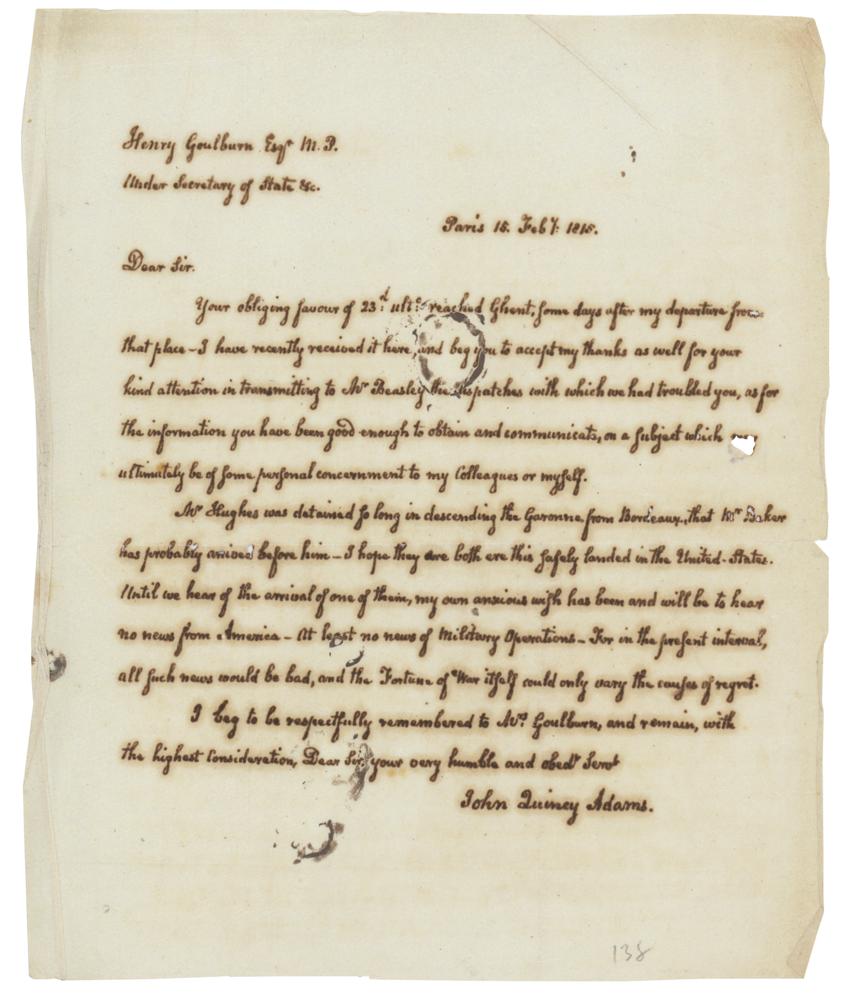 Henry Goulburn Esqr. M.P.
Under Secretary of State &c.
Paris 15. Feby. 1815.
Dear Sir.
Your obliging favour of 23d. ulto. reached Ghent, some days after my departure from
that place – I have recently received it here, and beg you to accept my thanks as well for your
kind attention in transmitting to Mr Beasley the dispatches with which we had troubled you, as for
the information you have been good enough to obtain and communicate, on a subject which
ultimately be of some personal concernment to my Colleagues or myself.
Mr Hughes was detained so long in descending the Garonne from Bordeaux, that Mr Baker
has probably arrived before him – I hope they are both ere this safely landed in the United-States.
Until we hear of the arrival of one of them, my own anxious wish has been and will be to hear
no news from America – At least no news of Military Operations – For in the present interval,
all such news would be bad, and the Fortune of War itself could only vary the causes of regret.
I beg to be respectfully remembered to Mrs Goulburn, and remain, with
the highest Consideration, Dear Sir, your very humble and obedt Servt
John Quincy Adams.
138